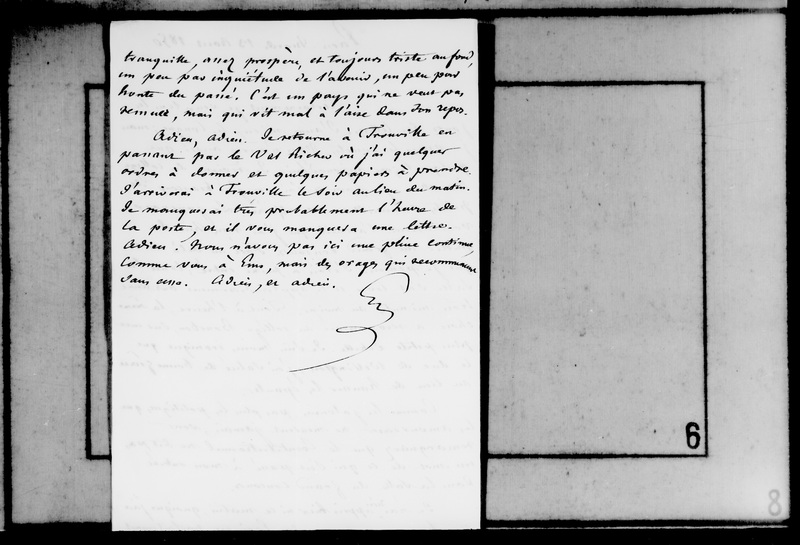 tranquille, assez prospère, et toujours triste au fond,
un peu par inquiétude de l'avenir, un peu par
honte du passé. C'est un pays qui ne veut pas
remuer, mais qui vit mal à l'aise dans son repos.
Adieu, adieu. Je retourne à Trouville en
passant par le Val Richer où j'ai quelques
ordres à donner et quelques papiers à prendre.
J'arriverai à Trouville le soir au lieu du matin.
Je manquerai très probablement l'heure de
la poste, et il vous manquera une lettre.
Adieu. Nous n'avons pas ici une pluie continue,
comme vous à Ems, mais des orages qui recommencent
sans cesse. Adieu, et adieu.
6
8